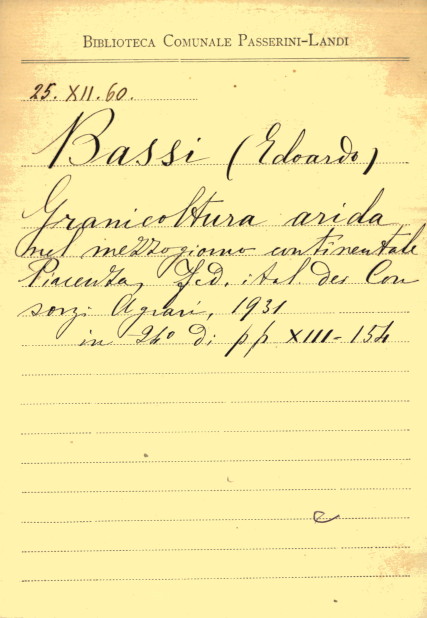 BIBLIOTECA COMUNALE PASSERINI-LANDI
25. XII. 60.
Bassi (Edoardo)
Granicoltura arida
nel mezzogiorno continentale
Piacenza, Fed. ital. dei Con
sorzi Agrari, 1931
in 24° di pp XIII-154